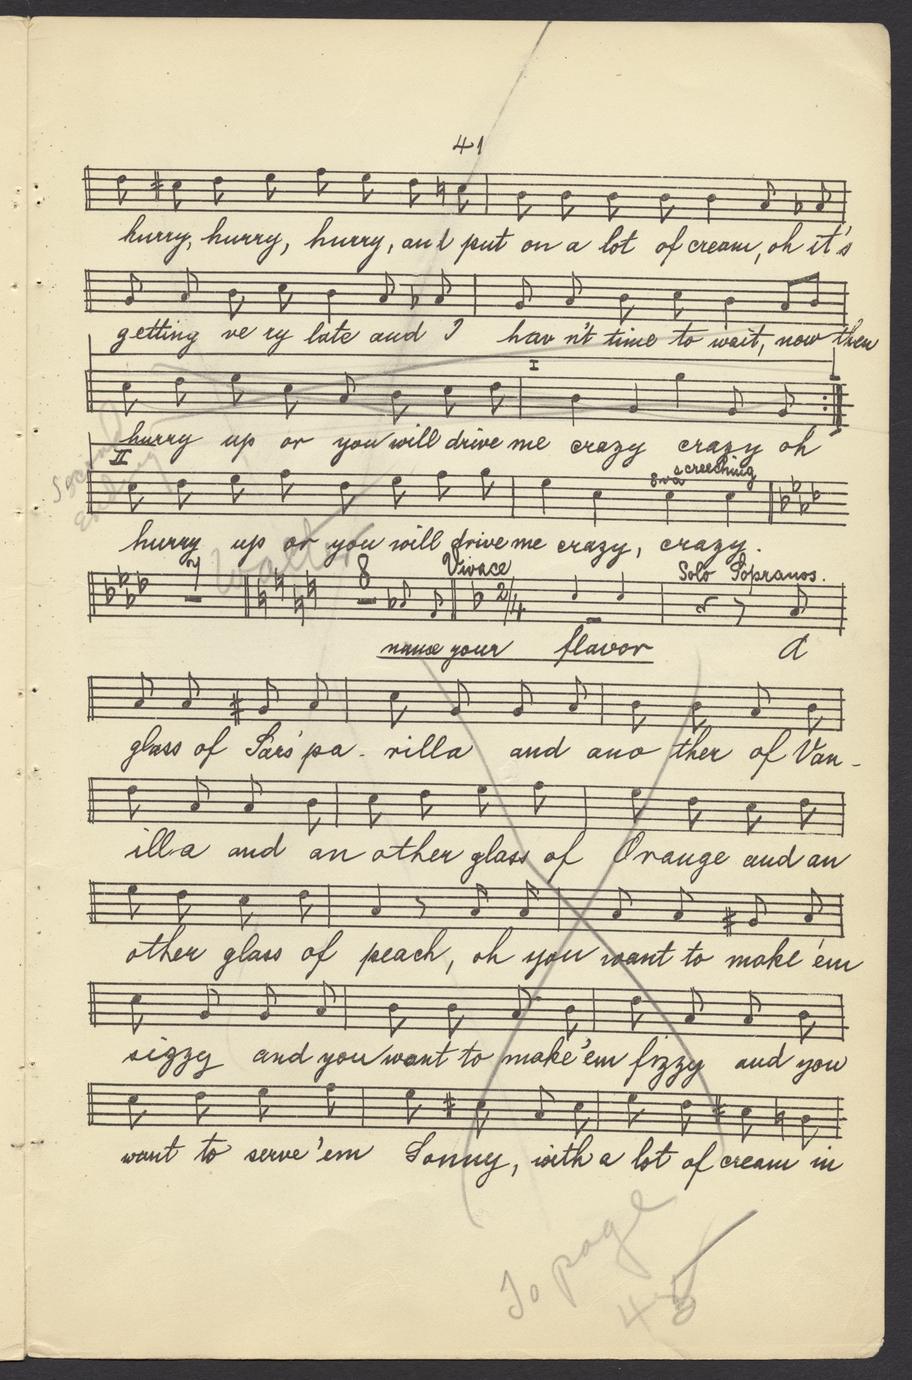 41
hurry, hurry, hurry, and put on a lot of cream, oh it's
getting ve ry late and I hav n't time to wait, now then
I
hurry up or you will drive me crazy crazy oh
II
Second ending
8va screeching
hurry up or you will drive me crazy, crazy.
Waltz
7 8 Vivace Solo Sopranos.
2/4
name your flavor A
glass of Sars' pa - rilla and ano ther of Van -
illa and an other glass of Orange and an
other glass of peach, oh you want to make 'em
sizzy and you want to make 'em fizzy and you
want to serve 'em Sonny, with a lot of cream in
To page